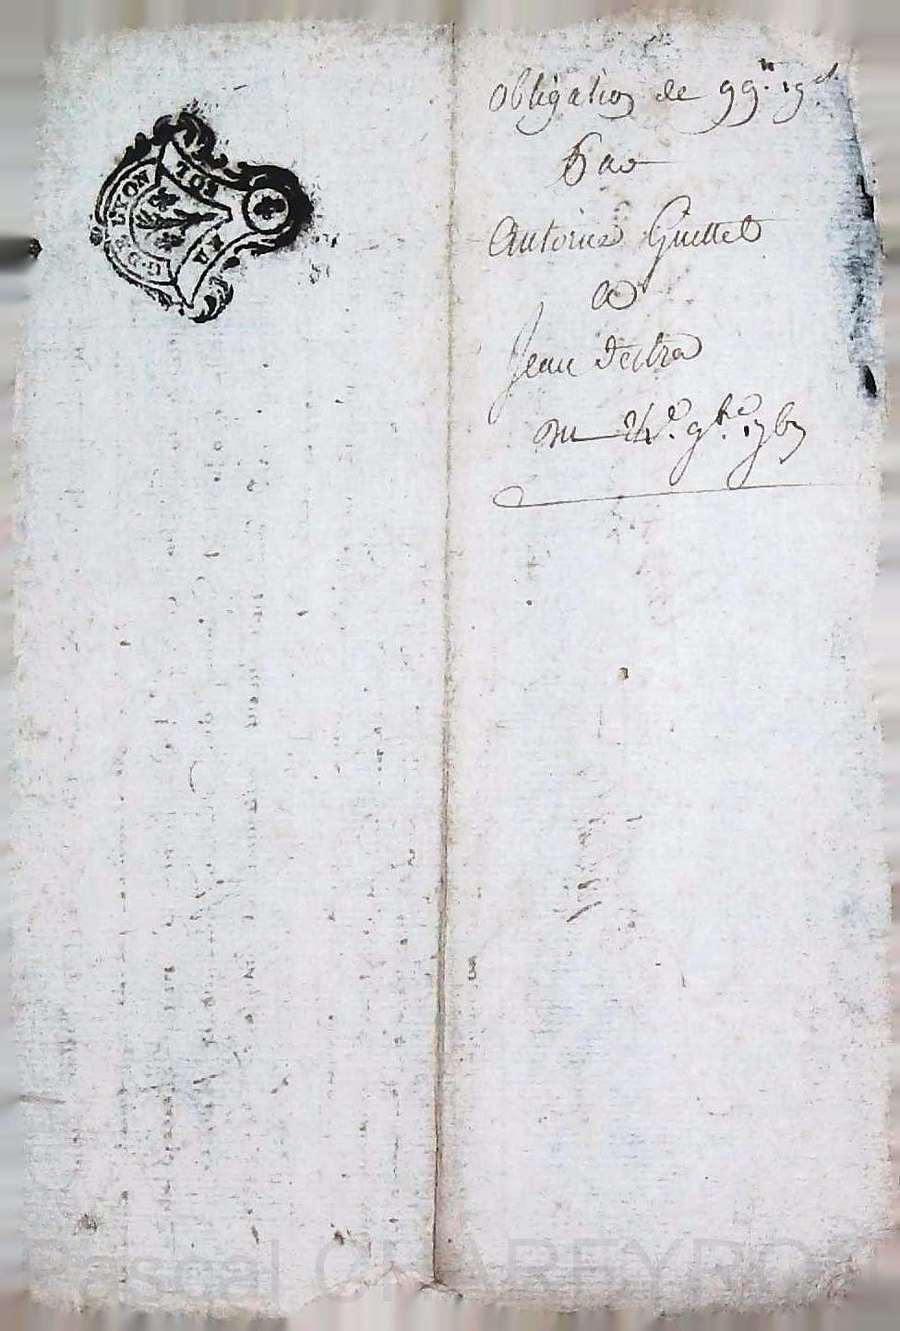 LYON
UN SOL
obligation de 99ᵗᵗ. 19ᵈ.
Par
Antoine Guittet
a
Jean Dextra
Du 24ᵉ. 9bre. 1767
Pascal CHAREYRON